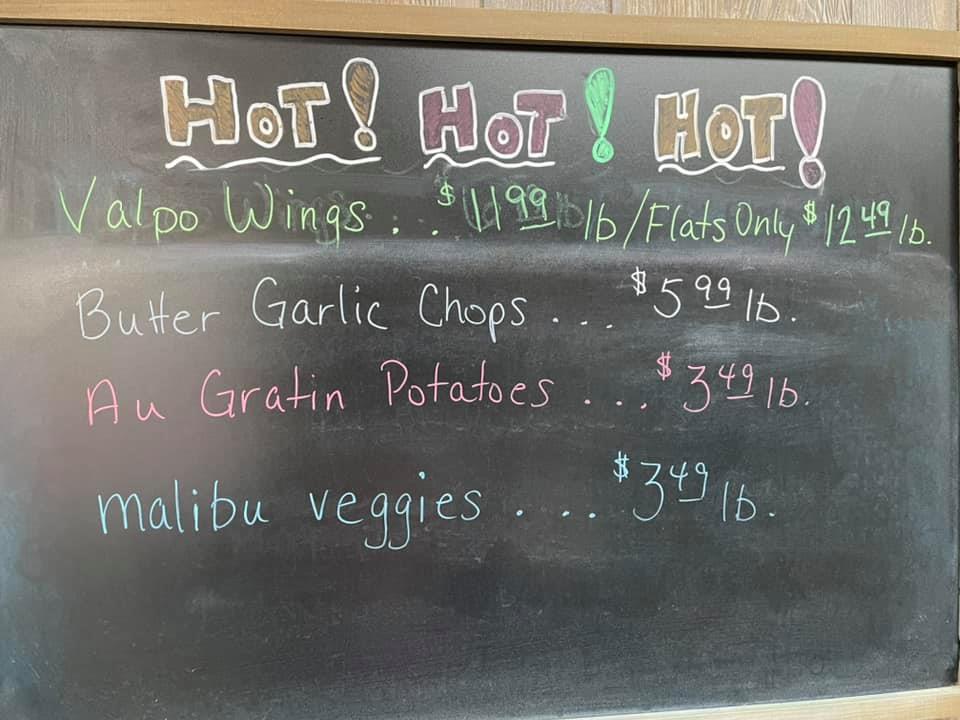 HOT! HOT! HOT!
Valpo Wings . . $11.99 lb/Flats Only $12.49 lb.
Butter Garlic Chops . . . $5.99 lb.
Au Gratin Potatoes . . . $3.49 lb.
malibu veggies . . . $3.49 lb.